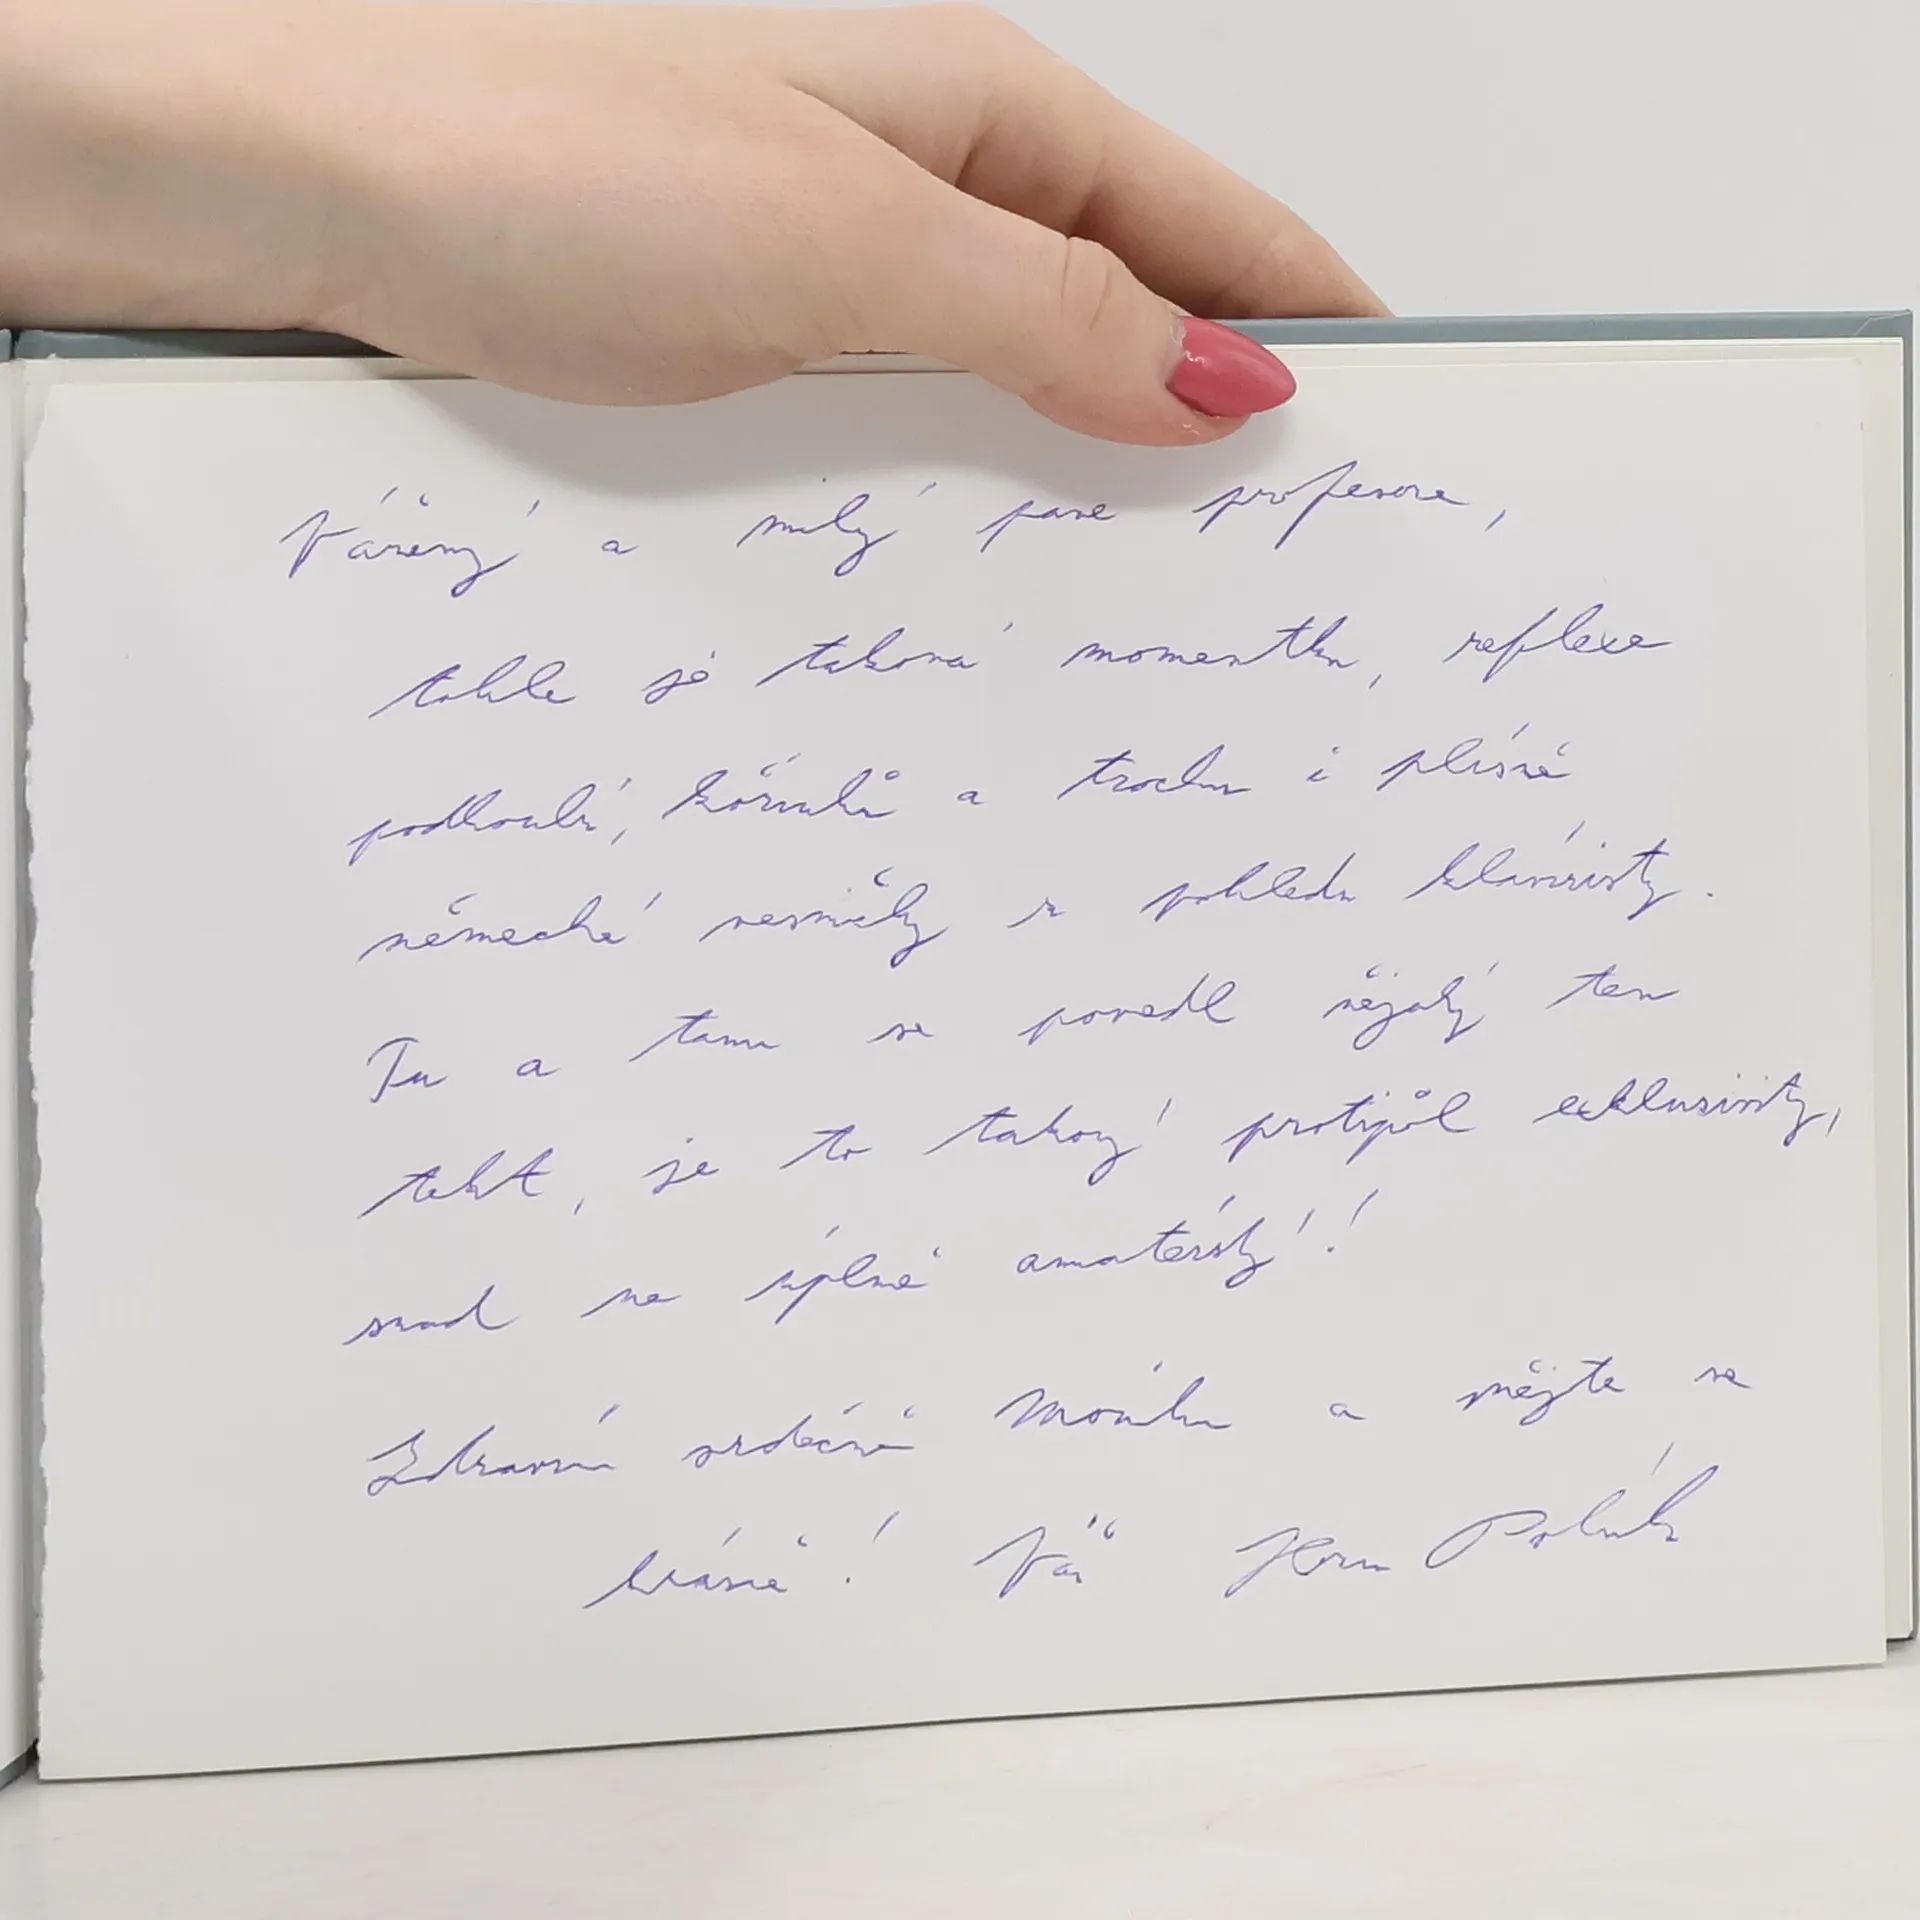 Vážený a milý pane profesore,
tohle je taková momentka, reflexe
podhoubí, kořínků a trochu i plísně
německé nesměly z pohledu klavíristy.
Tu a tam se povedl nějaký ten
tekt, je to takový protipól exklusivity,
snad ne úplně amatérský!
Zdravím srdečně Moniku a mějte se
krásně! Váš Polák